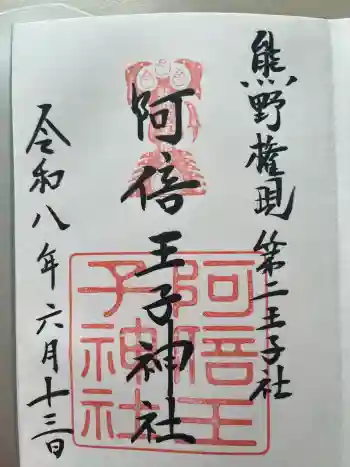 熊野権現 第二王子社
阿倍王子神社
令和八年六月十三日
阿倍王
子神社